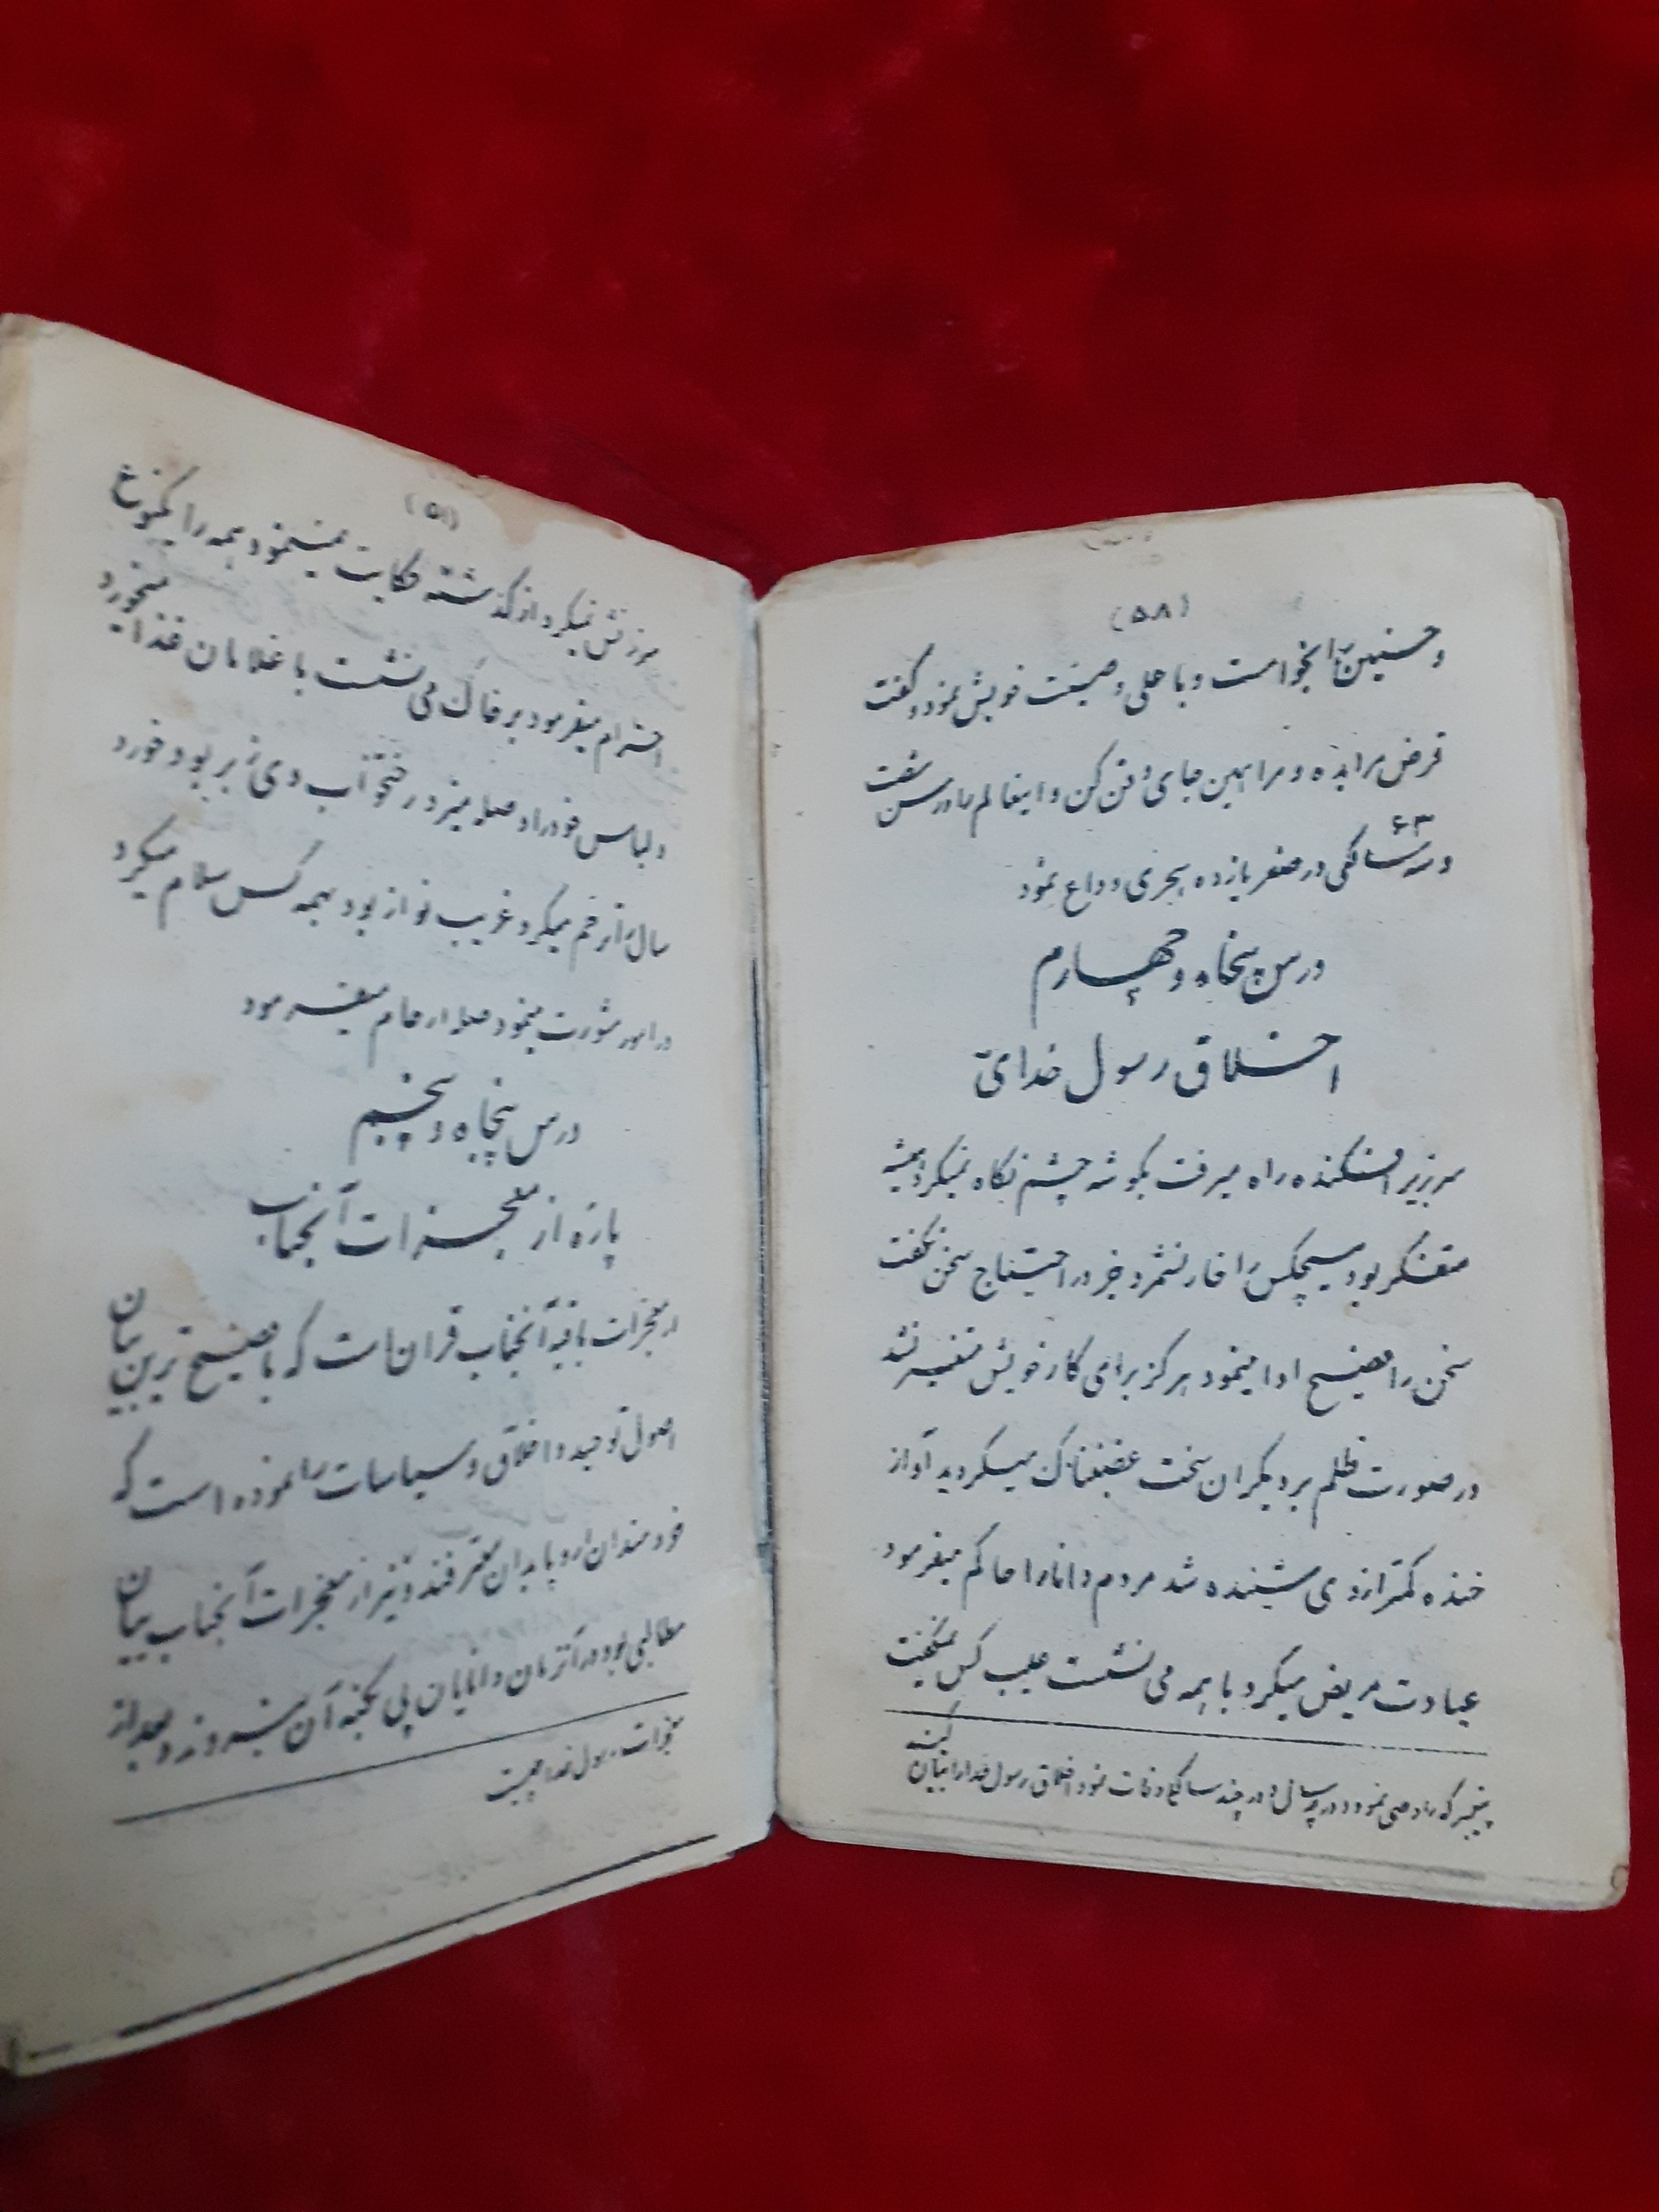 (۵۸)
و حسنین را بخواست و با علی وصیت خویش نمود و گفت
قرض مرا بده و مرا همین جای دفن کن و اینعالم را در سن شصت
۶۳
و سه سالگی در صفر یازده هجری وداع نمود
درس پنجاه و چهارم
اخلاق رسول خدای
سر بزیر افکنده راه میرفت بگوشه چشم نگاه نمیکرد همیشه
متفکر بود هیچکس را خار نشمرد جز در احتیاج سخن نگفت
سخن را فصیح ادا مینمود هرگز برای کار خویش متغیر نشد
در صورت ظلم بر دیگران سخت غضبناک میگردید آواز
خنده کمتر از وی شنیده شد مردم دانا را حاکم میفرمود
عیادت مریض میکرد با همه می نشست عیب کس نمیگفت
پیغمبر که را وصی نمود در چه سال و در چند سالگی وفات نمود اخلاق رسول خدا را بیان کنید
(۵۹)
سوزنش نمیکرد از گذشته حکایت نمینمود همه را یکنوع
احترام میفرمود بر خاک می نشست با غلامان غذا میخورد
و لباس خود را وصله میزد رختخواب وی زبر بود خورد
سال را ترحم میکرد غریب نواز بود بهمه کس سلام میکرد
در امور مشورت مینمود صله ارحام میفرمود
درس پنجاه و پنجم
پاره از معجزات آنجناب
از معجزات باقیه آنجناب قران است که با فصیح ترین بیان
اصول توحید و اخلاق و سیاسات را نموده است که
خردمندان اروپا بدان معترفند و نیز از معجزات آنجناب بیان
مطالبی بود در آنزمان دانایان پی بکنه آن نمیبردند و بعد از
معجزات رسول خدا چیست